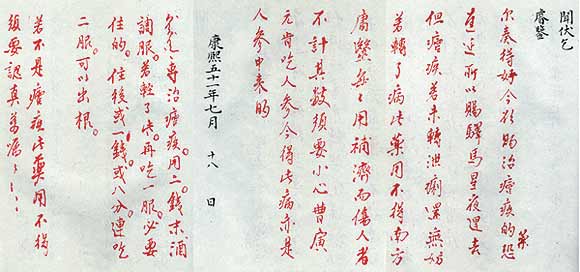 聞伏乞
睿鑒
尔奏得好今欲賜治瘧疾的藥恐
遲延所以賜驛馬星夜趕去
但瘧疾若未轉泄痢還無妨
若轉了病此藥用不得南方
庸醫每每用補濟而傷人者
不計其數須要小心曹寅
元肯吃人參今得此病亦是
人參中來的
康熙五十一年七月 十八 日
專治瘧疾。用二錢末酒
調服。若輕了些。再吃一服。必要
住的。住後或一錢。或八分。連吃
二服。可以出根。
若不是瘧疾此藥用不得
須要認真萬囑〻〻〻